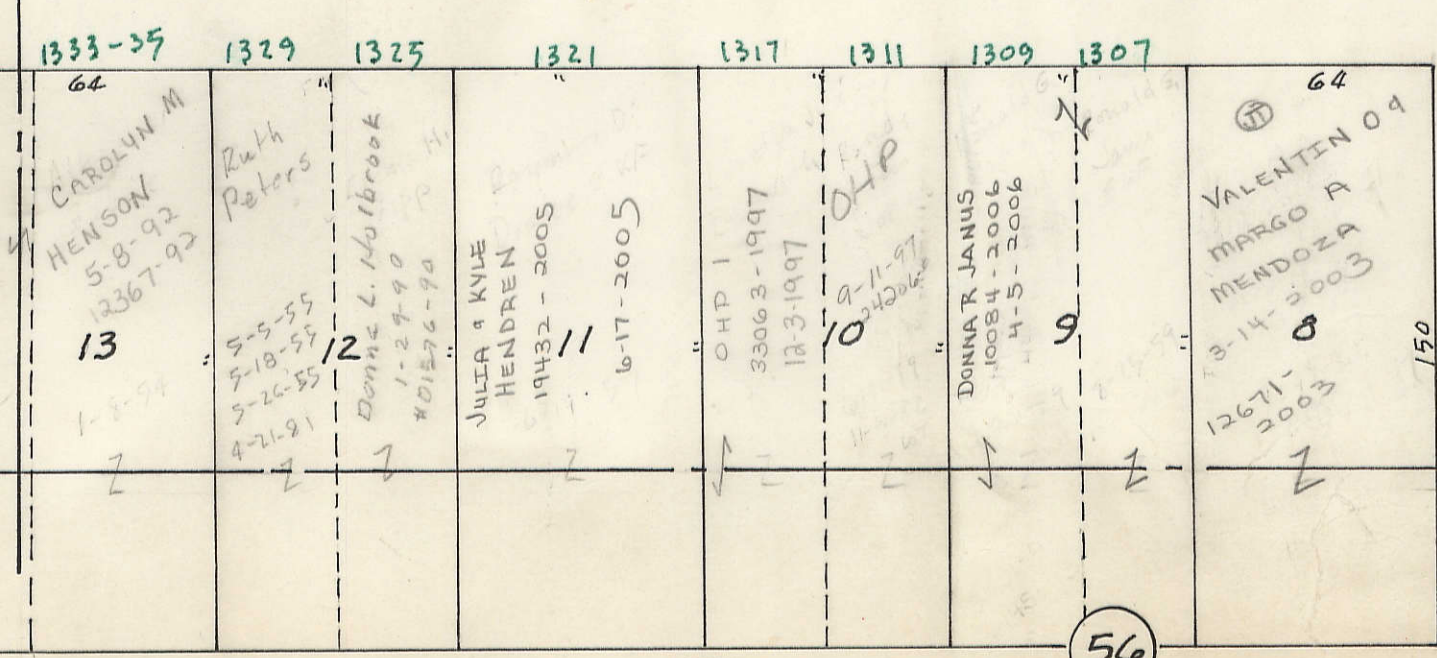 1333-35
1329
1325
1321
1317
1311
1309
1307
64
"
"
"
"
64
CAROLYN M
HENSON
5-8-92
12367-92
13
1-8-54
"
Ruth
Peters
5-5-55
5-18-55
5-26-55
4-21-81
12
Donna L. Holbrook
1-29-90
"
JULIA & KYLE
HENDREN
19432-2005
6-17-2005
11
"
OHP 1
33063-1997
12-3-1997
10
OHP
9-11-97
"
DONNA R JANUS
10084-2006
4-5-2006
9
"
JT
VALENTIN O &
MARGO A
MENDOZA
3-14-2003
8
12671-
2003
150
56